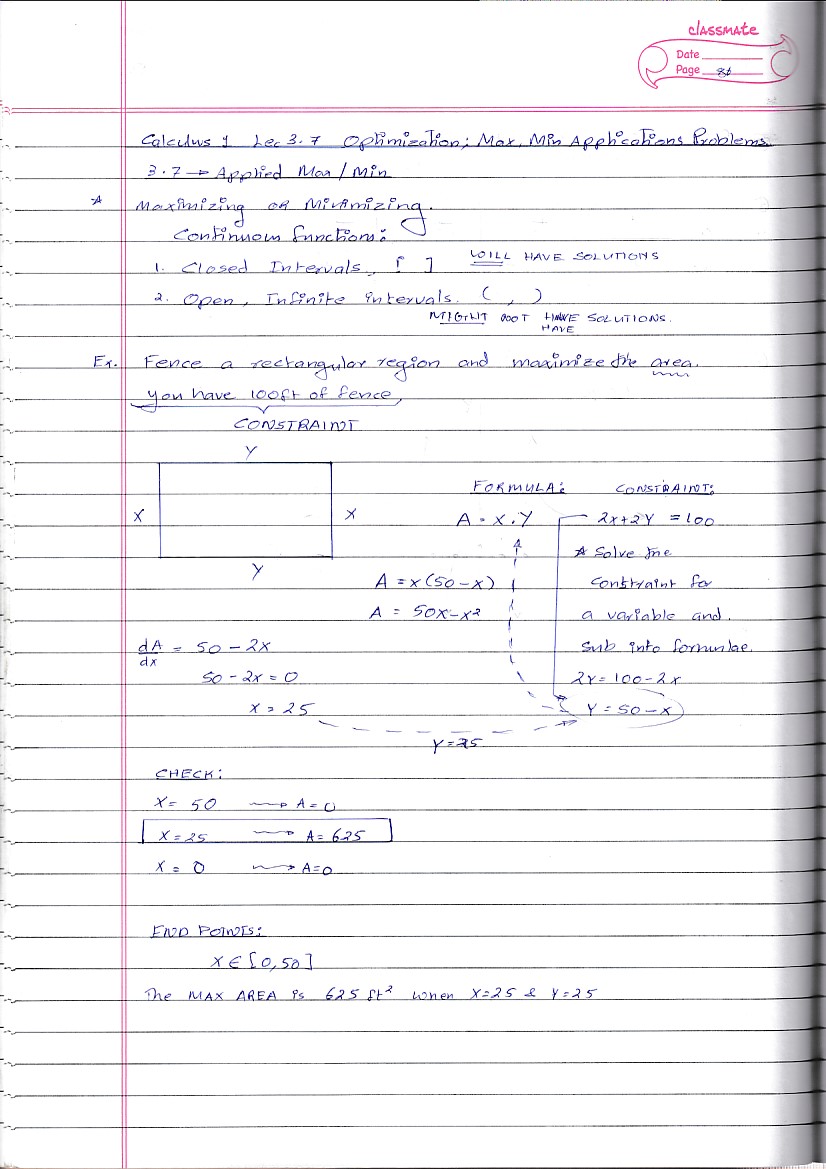 classmate
Date
Page 81
Calculus 1 Lec 3.7 Optimization; Max, Min Applications Problems.
3.7 → Applied Max / Min
* Maximizing OR Minimizing.
Continuous functions:
1. Closed Intervals, [ ] WILL HAVE SOLUTIONS
2. Open, Infinite intervals. ( , )
MIGHT NOT HAVE SOLUTIONS.
HAVE
Ex. Fence a rectangular region and maximize the area.
you have 100ft of fence,
CONSTRAINT
Y
FORMULA: CONSTRAINT:
X X A = X.Y 2X+2Y = 100
* Solve the
Y A = X(50-X) constraint for
A = 50X-X² a variable and
dA/dx = 50 - 2X sub into formulae.
50 - 2X = 0 2Y = 100 - 2X
X = 25 Y = 50 - X
Y = 25
CHECK:
X = 50 → A = 0
X = 25 → A = 625
X = 0 → A = 0
END POINTS:
X ∈ [0,50]
The MAX AREA is 625 ft² when X=25 & Y=25